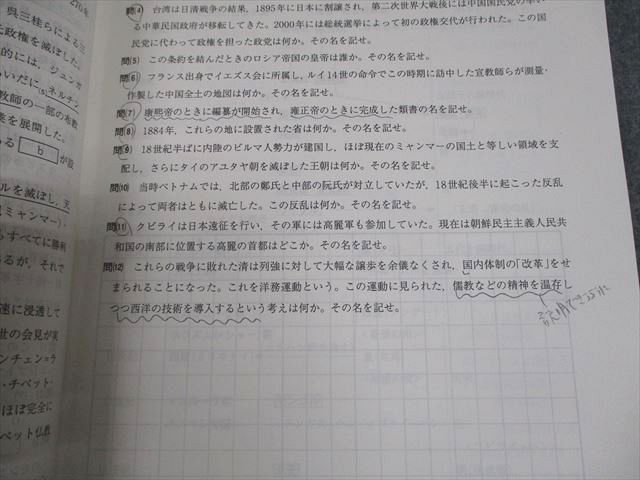 270年
呉三桂らによる三
政権を滅ぼした。
的には，ジュンガ
いだに⑸ネルチン
教師の一部の布教
を展開した。
る b が設
ルを滅ぼし，天
ミャンマー)・
もすべてに勝利
るが，それで
速に浸透して
世の会見が実
ンチェン=ラ
・チベット・
ほぼ完全に
ベット仏教
問⑷ 台湾は日清戦争の結果，1895年に日本に割譲され，第二次世界大戦後には中国国民党の率い
る中華民国政府が移転してきた。2000年には総統選挙によって初の政権交代が行われた。この国
民党に代わって政権を担った政党は何か。その名を記せ。
問⑸ この条約を結んだときのロシア帝国の皇帝は誰か。その名を記せ。
問⑹ フランス出身でイエズス会に所属し，ルイ14世の命令でこの時期に訪中した宣教師らが測量・
作製した中国全土の地図は何か。その名を記せ。
問⑺ 康熙帝のときに編纂が開始され，雍正帝のときに完成した類書の名を記せ。
問⑻ 1884年，これらの地に設置された省は何か。その名を記せ。
問⑼ 18世紀半ばに内陸のビルマ人勢力が建国し，ほぼ現在のミャンマーの国土と等しい領域を支
配し，さらにタイのアユタヤ朝を滅ぼした王朝は何か。その名を記せ。
問⑽ 当時ベトナムでは，北部の鄭氏と中部の阮氏が対立していたが，18世紀後半に起こった反乱
によって両者はともに滅亡した。この反乱は何か。その名を記せ。
問⑾ クビライは日本遠征を行い，その軍には高麗軍も参加していた。現在は朝鮮民主主義人民共
和国の南部に位置する高麗の首都はどこか。その名を記せ。
問⑿ これらの戦争に敗れた清は列強に対して大幅な譲歩を余儀なくされ，国内体制の「改革」をせ
まられることになった。これを洋務運動という。この運動に見られた，儒教などの精神を温存し
つつ西洋の技術を導入するという考えは何か。その名を記せ。
説明できるように